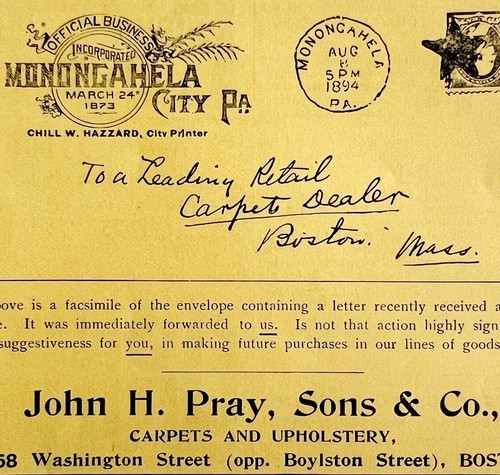 OFFICIAL BUSINESS
INCORPORATED
MONONGAHELA
MARCH 24th
1873
CITY PA
CHILL W. HAZZARD, City Printer
MONONGAHELA
AUG
8
5 PM
1894
PA.
To a Leading Retail
Carpets Dealer
Boston.
Mass.
ove is a facsimile of the envelope containing a letter recently received a
e. It was immediately forwarded to us. Is not that action highly sign
suggestiveness for you, in making future purchases in our lines of goods
John H. Pray, Sons & Co.,
CARPETS AND UPHOLSTERY,
58 Washington Street (opp. Boylston Street), BOS